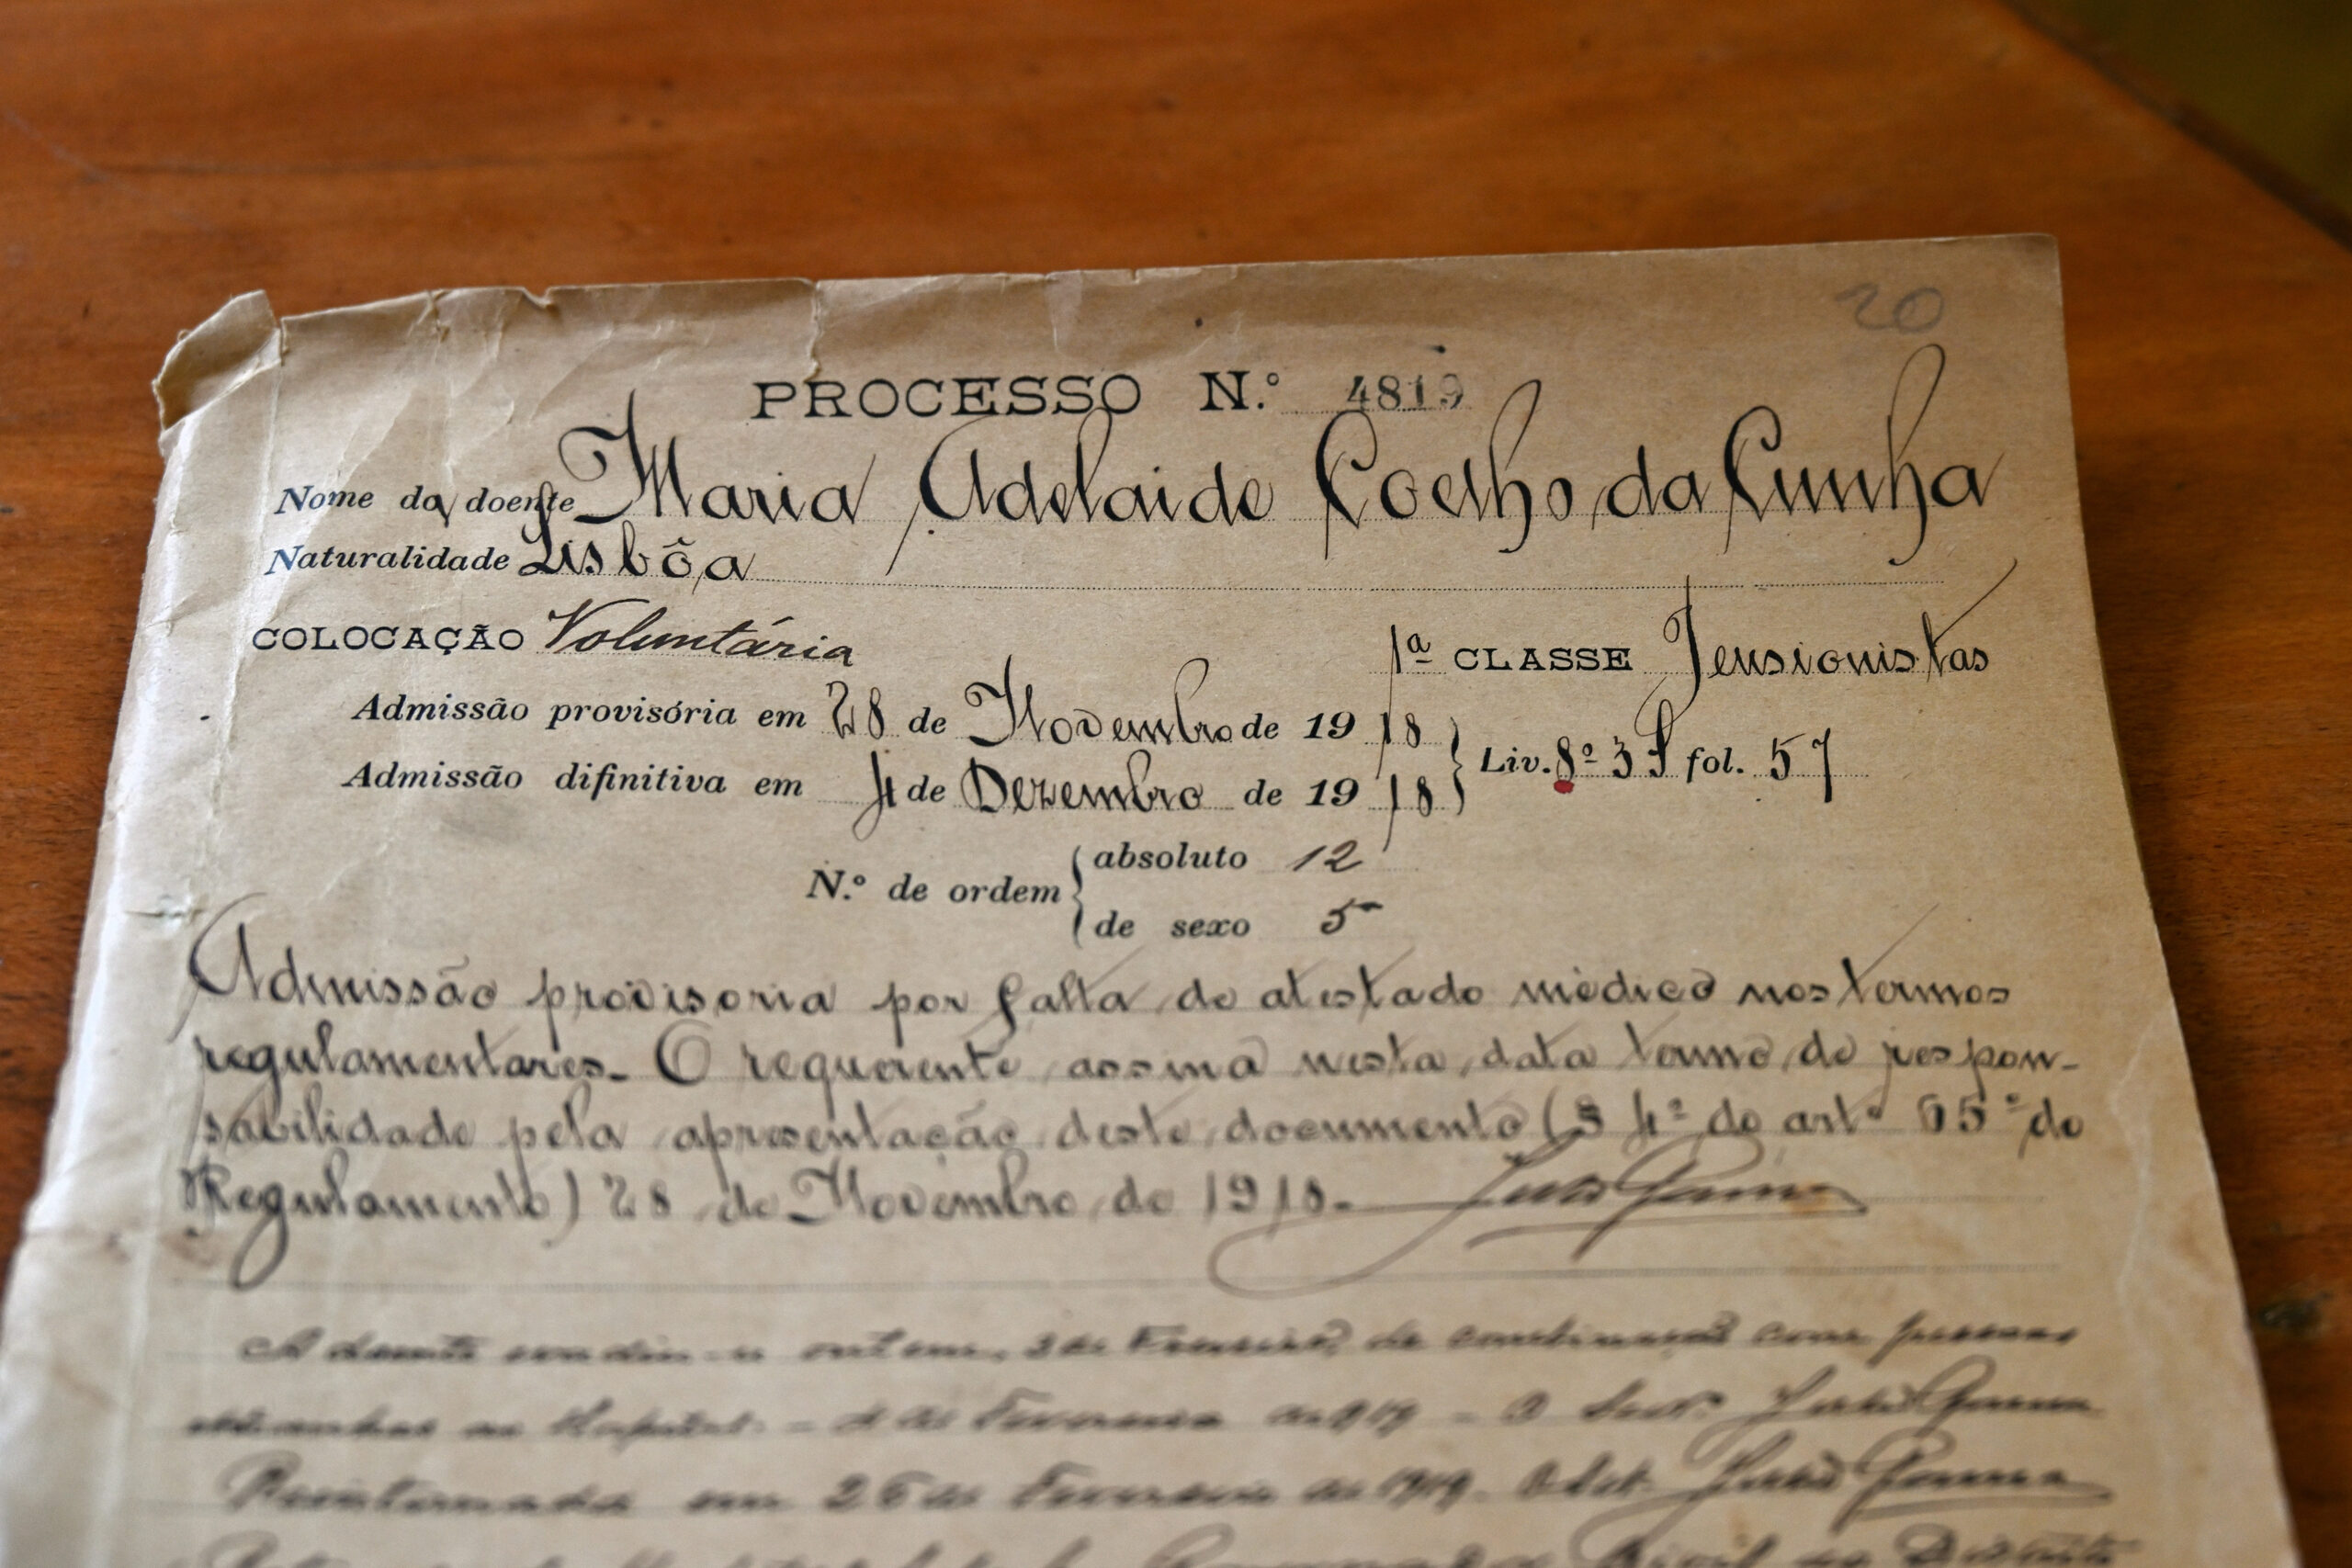 20
PROCESSO N.º 4819
Nome da doente Maria Adelaide Coelho da Cunha
Naturalidade Lisbôa
COLOCAÇÃO Voluntária
1ª CLASSE Pensionistas
Admissão provisória em 28 de Novembro de 1918
Admissão difinitiva em 4 de Dezembro de 1918
Liv. 8º 3 S fol. 57
N.º de ordem
absoluto 12
de sexo 5
Admissão provisoria por falta de atestado médico nos termos
regulamentares. O requerente assina nesta data termo de respon-
sabilidade pela apresentação deste documento (§ 4º do artº 65º do
Regulamento) 28 de Novembro de 1918.
A doente evadiu-se ontem, 3 de Fevereiro, de combinação com pessoas
estranhas ao Hospital. - 4 de Fevereiro de 1919 - O
Reinternada em 26 de Fevereiro de 1919.